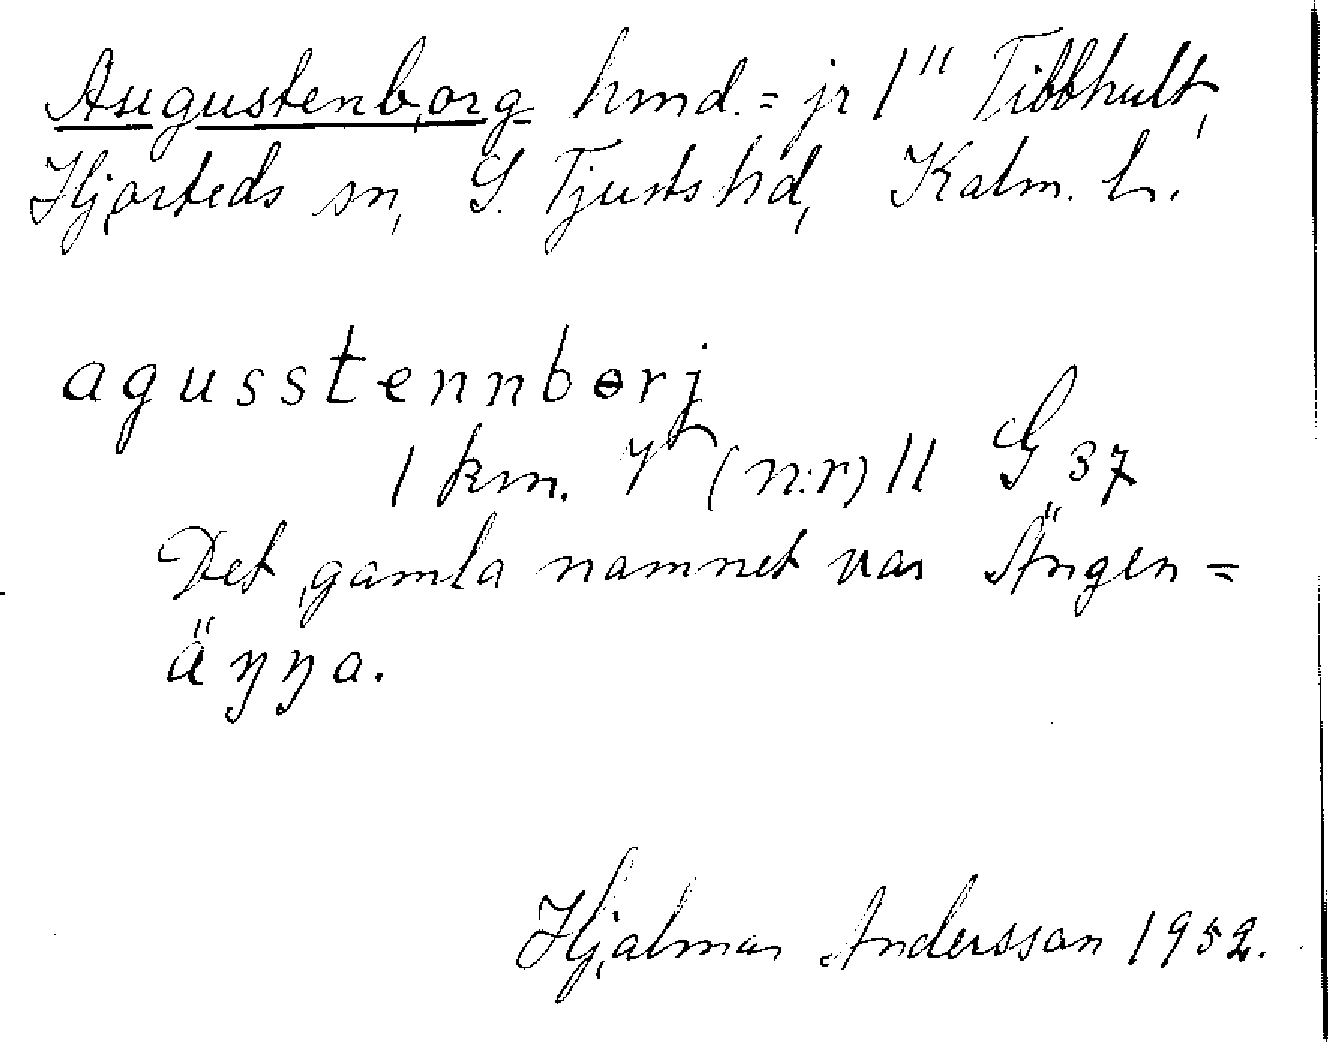 Augustenborg hmd. = jr 1" Tibbhult,
Hjorteds sn, S. Tjusts hd, Kalm. l.
agusstennbɵrj
1 km. V (n:r) 11 G 37
Det gamla namnet var Ängen =
äŋŋa.
Hjalmar Andersson 1952.